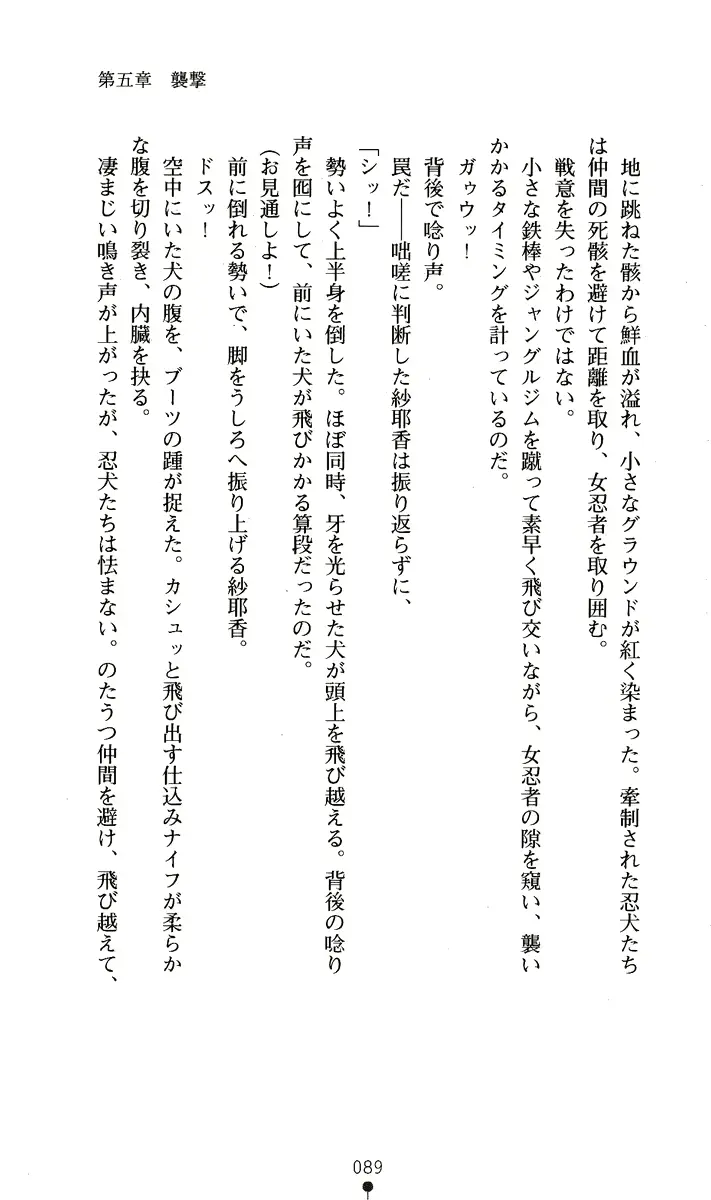 第五章　襲撃
　地に跳ねた骸から鮮血が溢れ、小さなグラウンドが紅く染まった。牽制された忍犬たち
は仲間の死骸を避けて距離を取り、女忍者を取り囲む。
　戦意を失ったわけではない。
　小さな鉄棒やジャングルジムを蹴って素早く飛び交いながら、女忍者の隙を窺い、襲い
かかるタイミングを計っているのだ。
　ガゥウッ！
　背後で唸り声。
　罠だ――咄嗟に判断した紗耶香は振り返らずに、
「シッ！」
　勢いよく上半身を倒した。ほぼ同時、牙を光らせた犬が頭上を飛び越える。背後の唸り
声を囮にして、前にいた犬が飛びかかる算段だったのだ。
（お見通しよ！）
　前に倒れる勢いで、脚をうしろへ振り上げる紗耶香。
　ドスッ！
　空中にいた犬の腹を、ブーツの踵が捉えた。カシュッと飛び出す仕込みナイフが柔らか
な腹を切り裂き、内臓を抉る。
　凄まじい鳴き声が上がったが、忍犬たちは怯まない。のたうつ仲間を避け、飛び越えて、
089